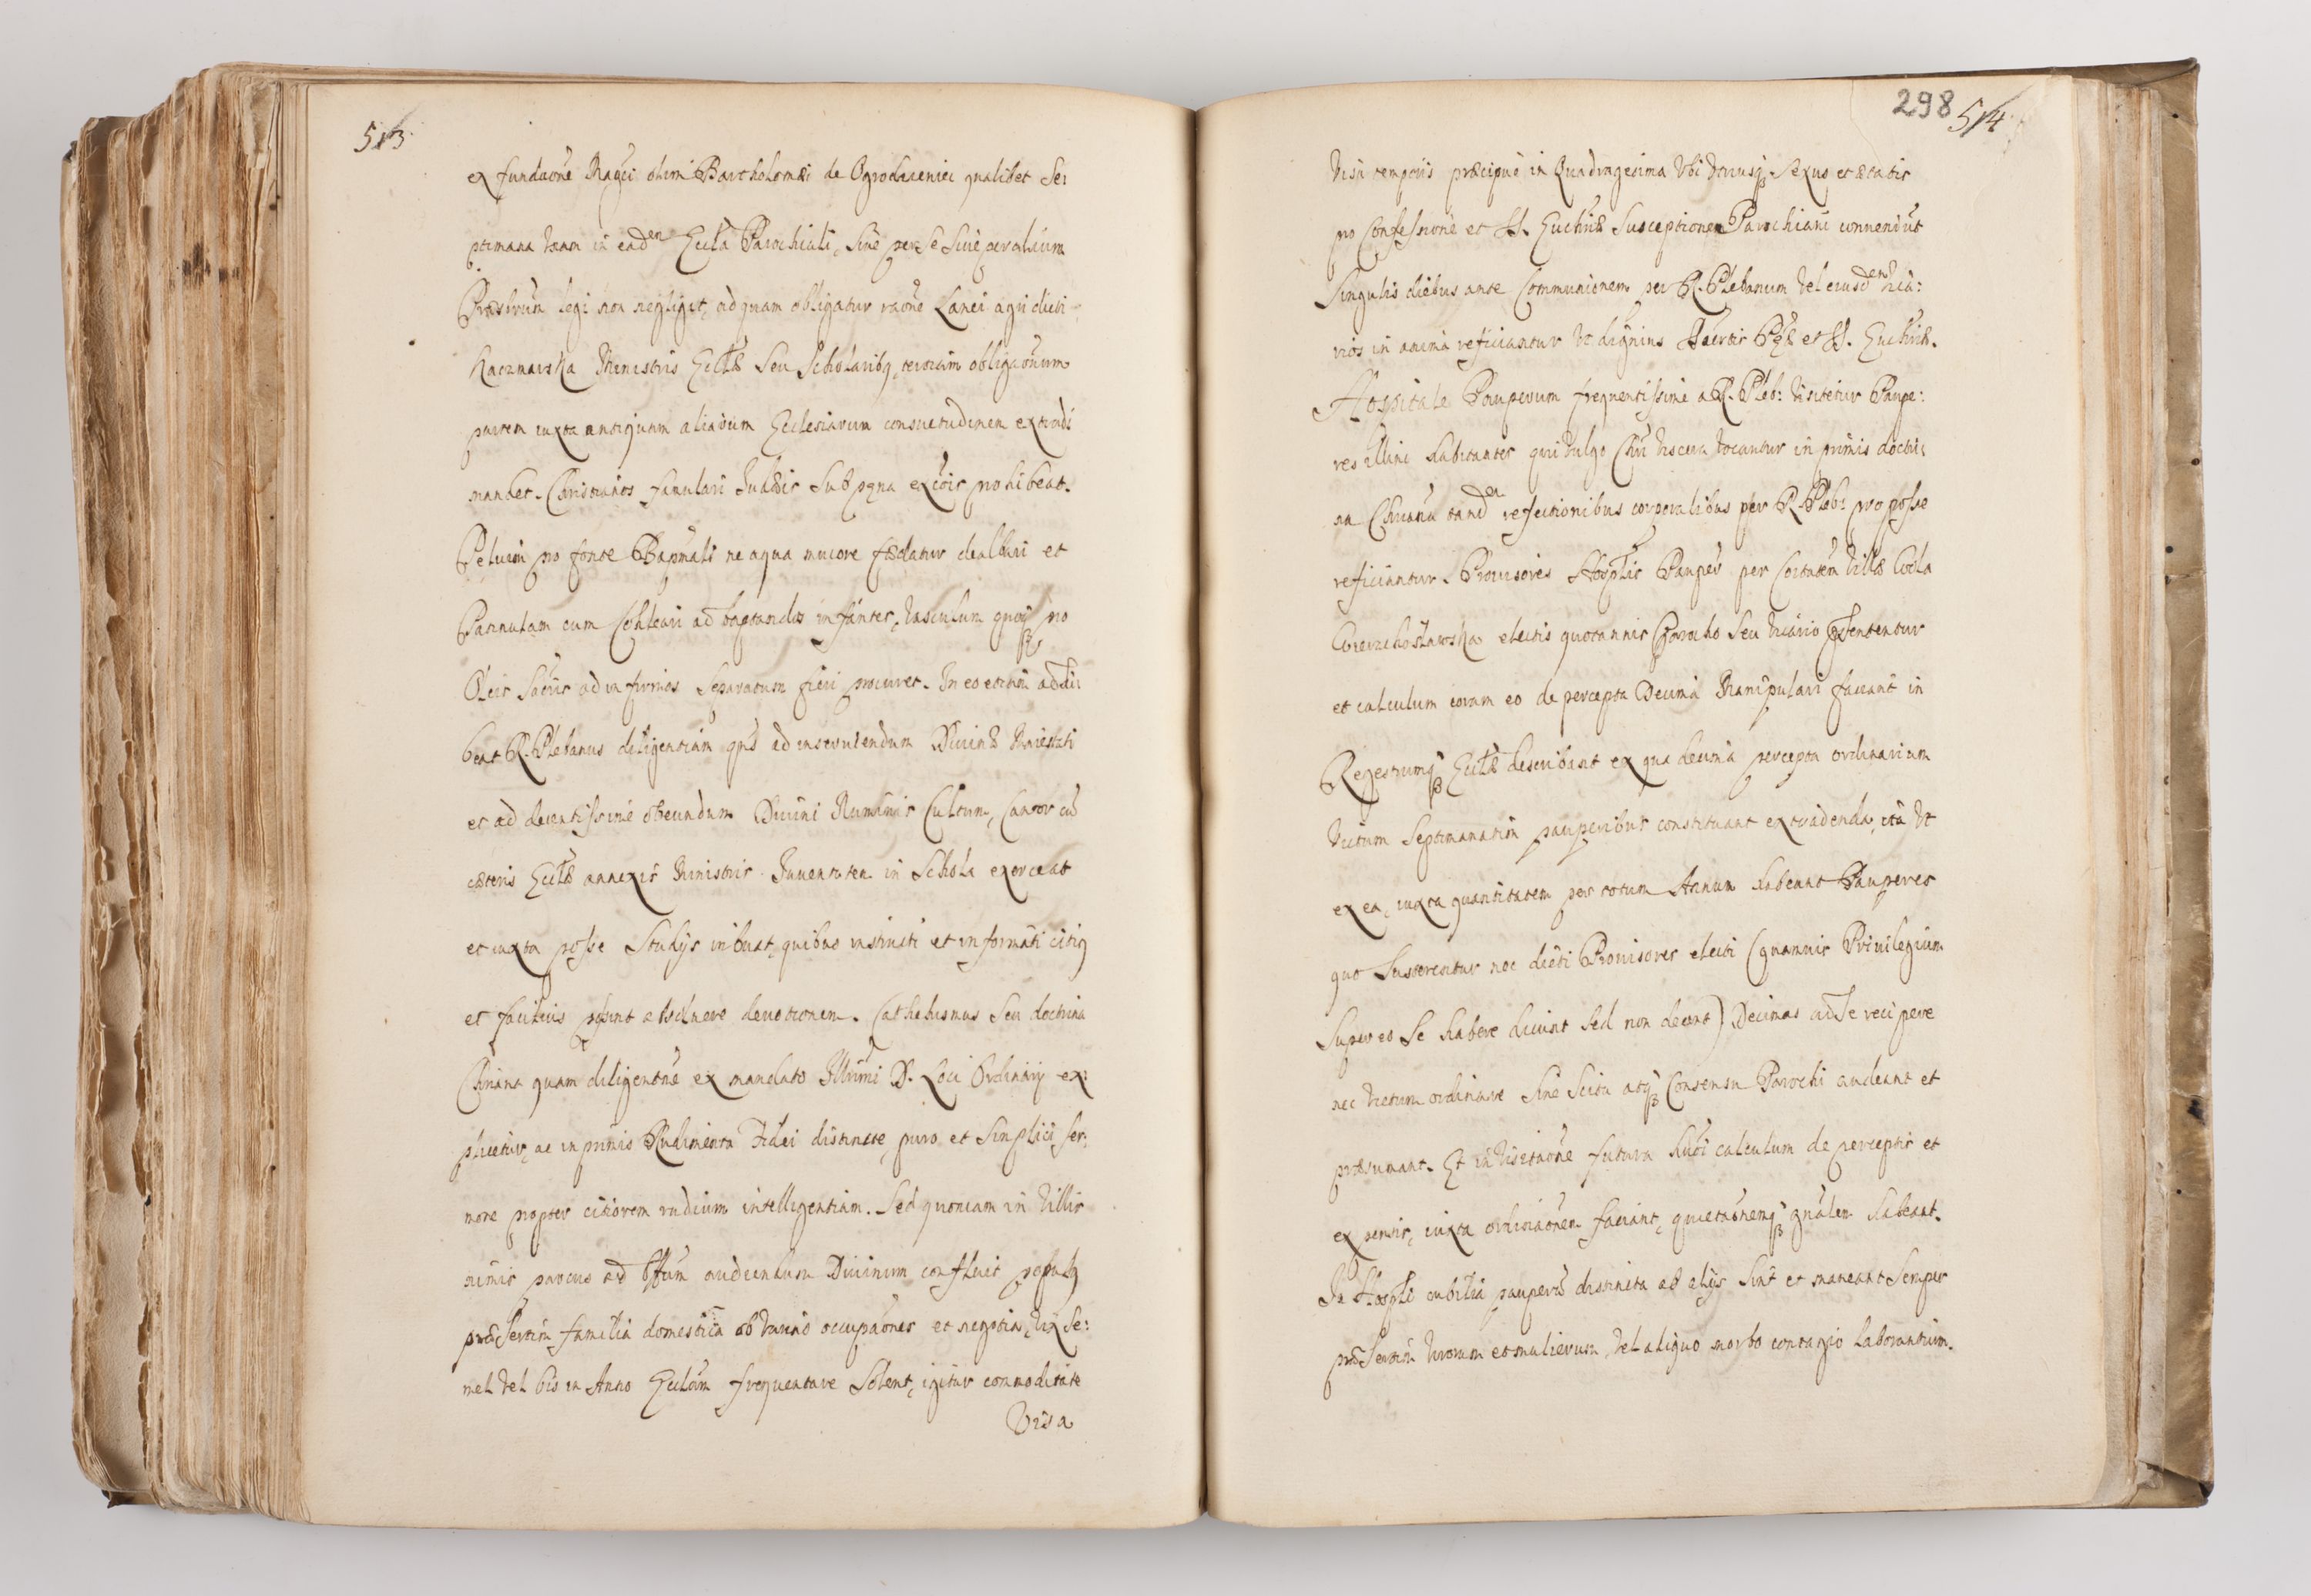 513
ex fundaōne Magri olim Bartholomæi de Ogrodzieniec qualibet Se:
ptimana unam in eadem Eccla Parochiali, siue per se siue per alium
Præsbrum legi non negligit, ad quam obligatur raōne Lanei agri dicti
Kaczmarska Ministris Ecclæ seu Scholaribq, tertiam obligaōnum
partem iuxta antiquam aliarum Ecclesiarum consuetudinem extradi
mandet. Christianos famulari Judæis sub pœna excōis prohibeat.
Peluim pro fonte Baptmali ne aqua mucore fœdatur dealbari et
Patinulam cum Cohleari ad baptandos infantes, vasculum quoq pro
Oleis Sacris ad infirmos separatum fieri procuret. In eo etiam adhi:
beat R. Plebanus diligentiam qud ad inseruiendum Diuinæ Maiestati
et ad decentissime obeundum Diuini Numinis Cultum, Cantor cū
cæteris Ecclæ annexis Ministris Juuentutem in Schola exerceat
et iuxta posse Studijs imbuat, quibus instructi et informati citiq
et facilius possint absoluere deuotionem. Cathehismus seu doctrina
Chriana quam diligentme ex mandato Illrmi D. Loci Ordinarij ex:
plicetur, ac inprimis Rudimenta Fidei distincte, puro et simplici ser:
mone propter citiorem rudium intelligentiam. Sed quoniam in Villis
nimis parcus ad Offum audiendum Diuinum confluit populq
præsertim familia domestica ob varias occupaōnes et negotia, vix se:
mel vel bis in Anno Ecclam frequentare solent, igitur commoditate
Visa
298 514
Visa temporis præcipue in Quadragesima Vbi vtriusq Sexus et ætatis
pro Confessione et SS. Euchræ Susceptionem Parochiani conueniūt
Singulis diebus ante Communionem per R. Plebanum vel eiusdem Vica:
rios in anima reficiantur vt dignius Sacrtis Pœæ et SS. Euchræ.
Hospitale Pauperum frequentissime a R. Pleb: visitetur Paupe:
res illinc habitantes qui vulgo Chri viscera vocantur in primis doctri:
na Chriana tandem refectionibus corporalibus per R. Pleb: pro posse
reficiantur. Prouisores Hosptlis Pauperū per Coitatem Villæ
electis quotannis Parocho seu Vicario præsententur
et calculum coram eo de percepta Decima Manipulari faciant in
Regestrumq Ecclæ describant ex qua decima percepta ordinarium
victum septimanatim pauperibus constituant extradenda, ita vt
ex ea, iuxta quantitatem per totum Annum habeant Pauperes
quo sustententur nec dicti Prouisores electi (quamuis Priuilegium
super eo se habere dicunt sed non docent) Decimas ad se recipere
nec victum ordinare sine scitu atq Consensu Parochi audeant et
præsumant. Et in Visitaōne futura huōi calculum de perceptis et
expensis, iuxta ordinaōnem faciant, quietaōnemq gnalem habeant.
In Hosptli cubilia pauperū distincta ab alijs sint et maneant semper
præsertim virorum et mulierum, vel aliquo morbo contagio laborantium.